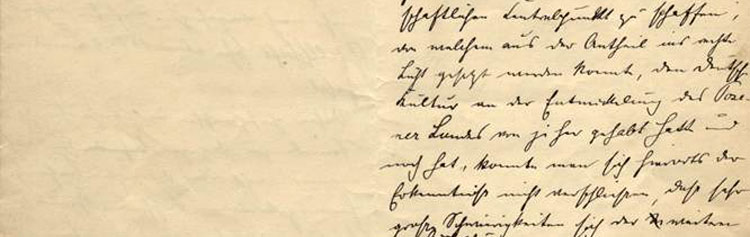 schaftlichen Centralpunkt zu schaffen,
von welchem aus der Antheil ins rechte
Licht gesetzt werden konnte, den deutsche
Kultur an der Entwickelung des Pose-
ner Landes von je her gehabt hatte und
noch hat, konnte man sich hierorts der
Erkenntniß nicht verschließen, daß sehr
große Schwierigkeiten sich der weiteren